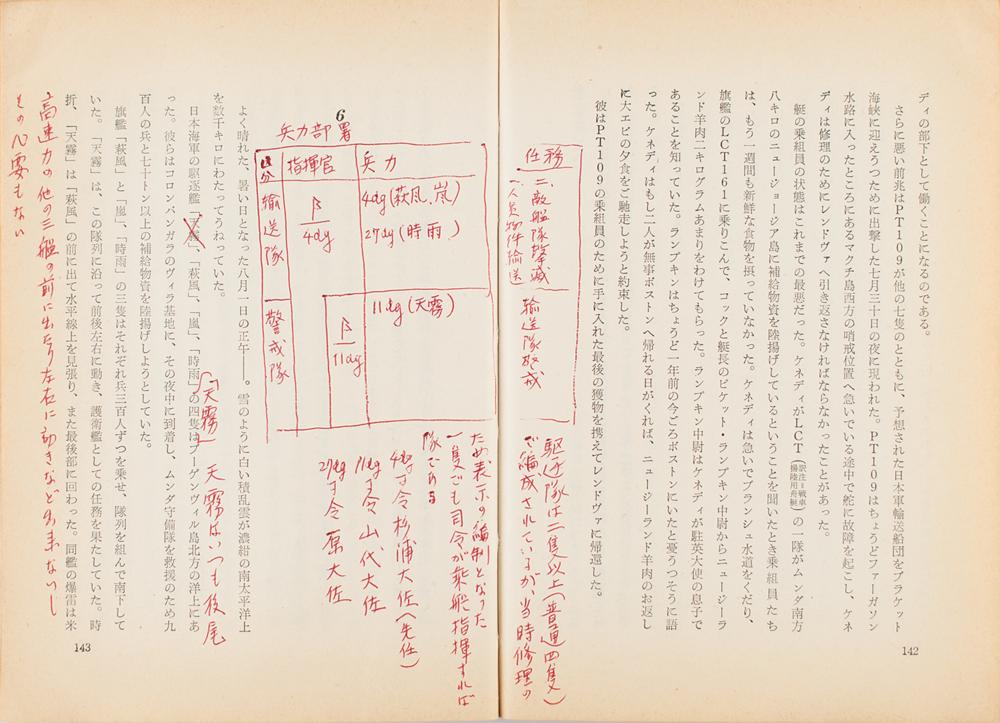 ディの部下として働くことになるのである。
さらに悪い前兆はＰＴ１０９が他の七隻のとともに、予想された日本軍輸送船団をブラケット
海峡に迎えうつために出撃した七月三十日の夜に現われた。ＰＴ１０９はちょうどファーガソン
水路に入ったところにあるマクチ島西方の哨戒位置へ急いでいる途中で舵に故障を起こし、ケネ
ディは修理のためにレンドヴァへ引き返さなければならなかったことがあった。
艇の乗組員の状態はこれまでの最悪だった。ケネディがＬＣＴ（訳注＝戦車揚陸用舟艇）の一隊がムンダ南方
八キロのニュージョージア島に補給物資を陸揚げしているということを聞いたとき乗組員たち
は、もう一週間も新鮮な食物を摂っていなかった。ケネディは急いでブランシュ水道をくだり、
旗艦のＬＣＴ１６１に乗りこんで、コックと艇長のピケット・ランプキン中尉からニュージーラ
ンド羊肉二キログラムあまりをわけてもらった。ランプキン中尉はケネディが駐英大使の息子で
あることを知っていた。ランプキンはちょうど一年前の今ごろボストンにいたと憂うつそうに語
った。ケネディはもし二人が無事ボストンへ帰れる日がくれば、ニュージーランド羊肉のお返し
に大エビの夕食をご馳走しようと約束した。
彼はＰＴ１０９の乗組員のために手に入れた最後の獲物を携えてレンドヴァに帰還した。
142
任務
一、人員物件輸送
二、敵艦隊撃滅
輸送隊警戒
駆逐隊は二隻以上(普通四隻)
で編成されているが、当時修理の
ため表示の編制となった
一隻でも司令が乗艦指揮すれば
隊である
4dg司令杉浦大佐(先任)
11dg司令山代大佐
27dg司令原大佐
6
兵力部署
区分 指揮官 兵力
輸送隊
β/4dg
4dg(萩風、嵐)
27dg(時雨)
警戒隊
β/11dg
11dg(天霧)
よく晴れた、暑い日となった八月一日の正午――。雪のように白い積乱雲が濃紺の南太平洋上
を数千キロにわたってうねっていた。
日本海軍の駆逐艦「天霧」、「萩風」、「嵐」、「時雨」の四隻はブーゲンヴィル島北方の洋上にあ
「天霧」
天霧はいつも後尾
った。彼らはコロンバンガラのヴィラ基地に、その夜中に到着し、ムンダ守備隊を救援のため九
百人の兵と七十トン以上の補給物資を陸揚げしようとしていた。
旗艦「萩風」と「嵐」、「時雨」の三隻はそれぞれ兵三百人ずつを乗せ、隊列を組んで南下して
いた。「天霧」は、この隊列に沿って前後左右に動き、護衛艦としての任務を果たしていた。時
折、「天霧」は「萩風」の前に出て水平線上を見張り、また最後部に回わった。同艦の爆雷は米
高速力の他の三艦の前に出たり左右に動きなど出来ないし
その必要もない
143